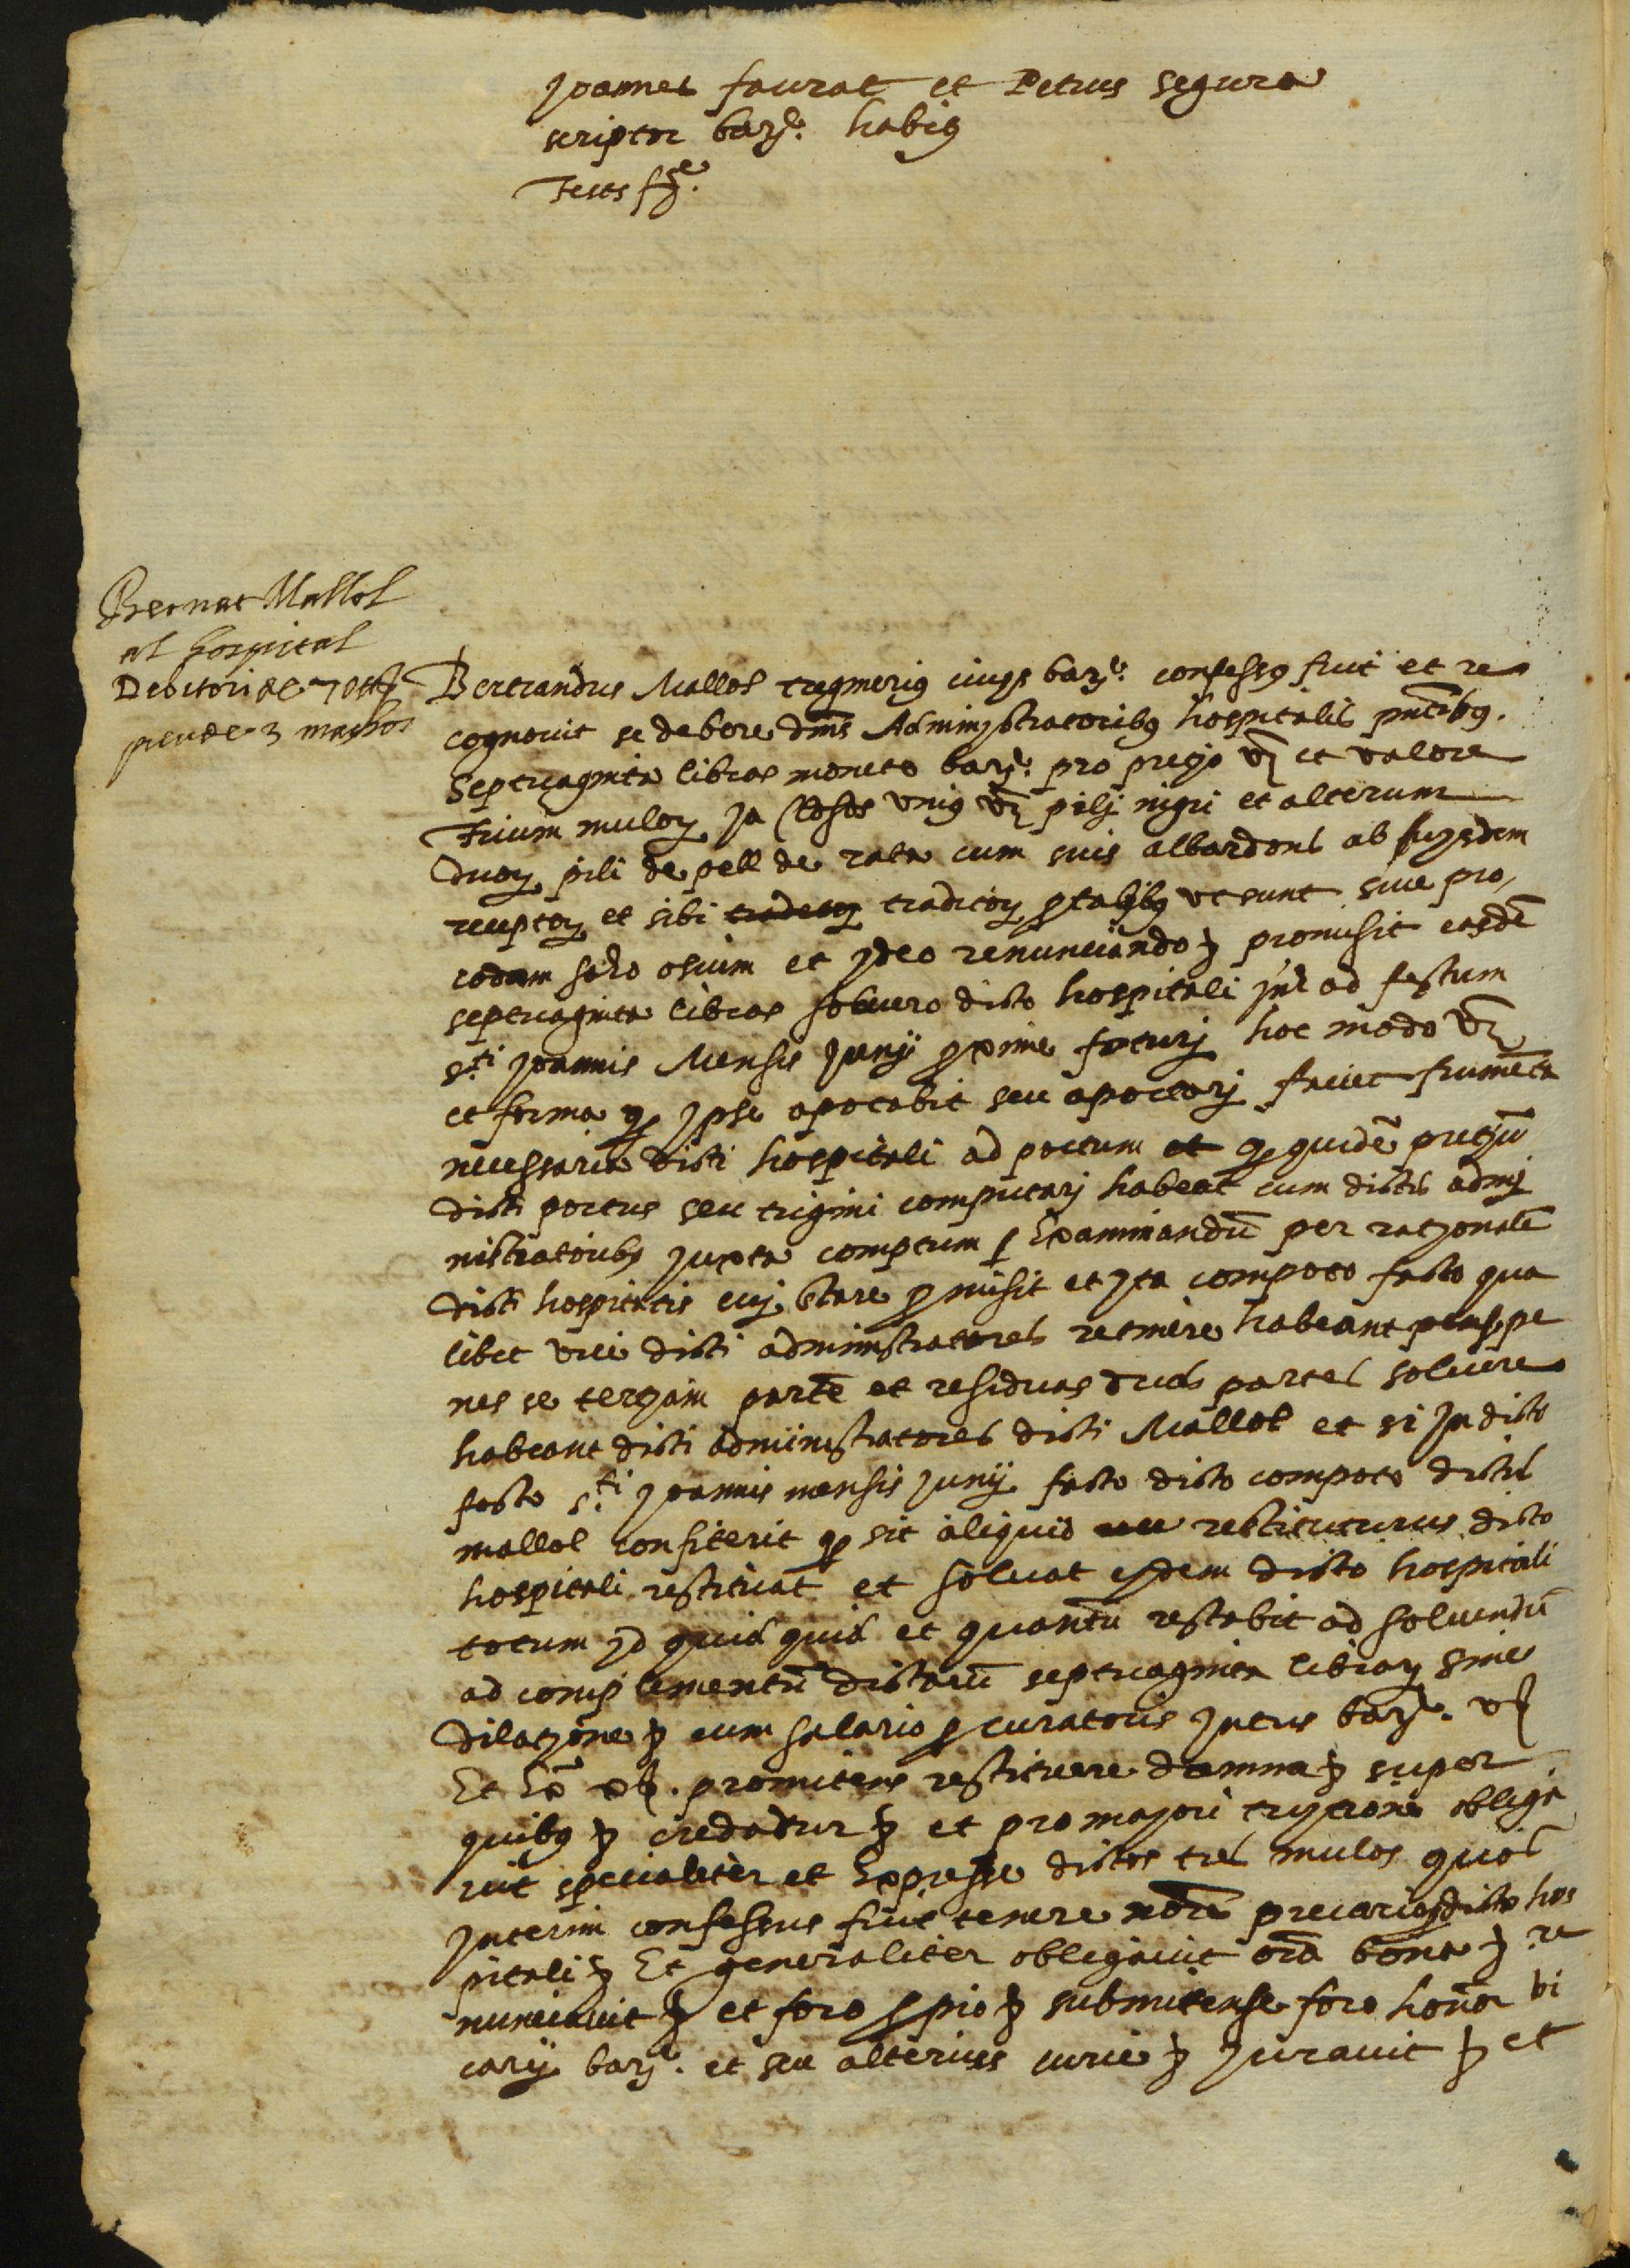 Joannes faurat et Petrus segura
scriptor barᵉ. habiꝰ
Testes
Bernat Mallol
al hospital
Debitori de 70
preu de 3 machos
Bertrandus Mallol tregineriꝰ civis barᵉ. confessꝰ fuit et re
cognovit se debere dnis Administratoribꝰ hospitalis pntibꝰ.
Septuaginta libras monete barᵉ. pro pretio et valore
Trium mulorꝝ ja closos vniꝰ vꝫ pilj nigri et alterum
duorꝝ pili de pell de rata cum suis albardons ab eisdem
receptorꝝ et sibi traditorꝝ ꝑ talibꝰ ut sunt sive pro
et jdeo renunciando promisit easdē
septuaginta libras solvere dicto hospitali ad festum
s.ti Joannis Mensis Junij ꝓxime futurj hoc modo vꝫ
et forma ꝙ Jpse aportabit seu aportarj faciet frumēta
necessaria dicti hospitali ad portum et ꝙ quidē pretiū
dicti portus seu trigini computarj habeat cum dictis admj
nistratoribꝰ juxta comptum Examinandū per rationalē
dicti hospitalis cuj stare ꝓmisit et jta compoto facto qua
libet vice dicti administratores retinere habeant pe
nes se terciam partē et residuas duas partes solvere
habeant dicti administratores dicti Mallol et si Jn dicto
festo s.ti Joannis mensis Junij facto dicto compoto dictus
mallol confiterit ꝙ sit aliquid restituturus dicto
hospitali restituat et solvat eidem dicto hospitali
totum jd quid quid et quantū restabit ad solvendū
ad complementū dictarū septuaginta librarꝝ sine
dilatione cum salario ꝓcuratoris jntus barᵉ.
Et promitens restituere damna super
quibꝰ credatur et pro majori obliga
vit specialiter et Expresse dictos tres mulos quos
Jnterim confessus fuit tenere noīe precario dicto hos
pitali Et generaliter obligavit oīa bona re
nunciavit et foro ꝓpio submitens se foro honor vi
carij barᵉ. et seu alterius curie juravit et